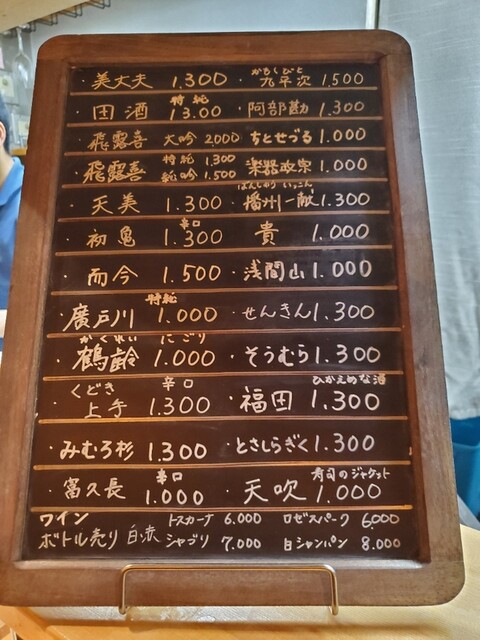 ・美丈夫 1.300 ・かもしびと 九平次 1.500
・田酒 特純 13.00 阿部勘 1.300
・飛露喜 大吟 2,000 ちとせづる 1.000
・飛露喜 特純 1.300 純吟 1.500 楽器政宗 1.000
・天美 1.300 ・ばんしゅう いっこん 播州一献 1.300
・初亀 辛口 1.300 貴 1.000
・而今 1.500 ・浅間山 1.000
・廣戸川 特純 1.000 ・せんきん 1.300
・かくれい 鶴齢 にごり 1.000 ・そうむら 1.300
・くどき上手 辛口 1.300 ・福田 ひかえめな酒 1.300
・みむろ杉 1.300 ・とさしらぎく 1.300
・富久長 辛口 1.000 ・天吹 寿司のジャケット 1.000
ワイン トスカーナ 6.000 ロゼスパーク 6.000
ボトル売り 白・赤 シャブリ 7.000 白シャンパン 8.000